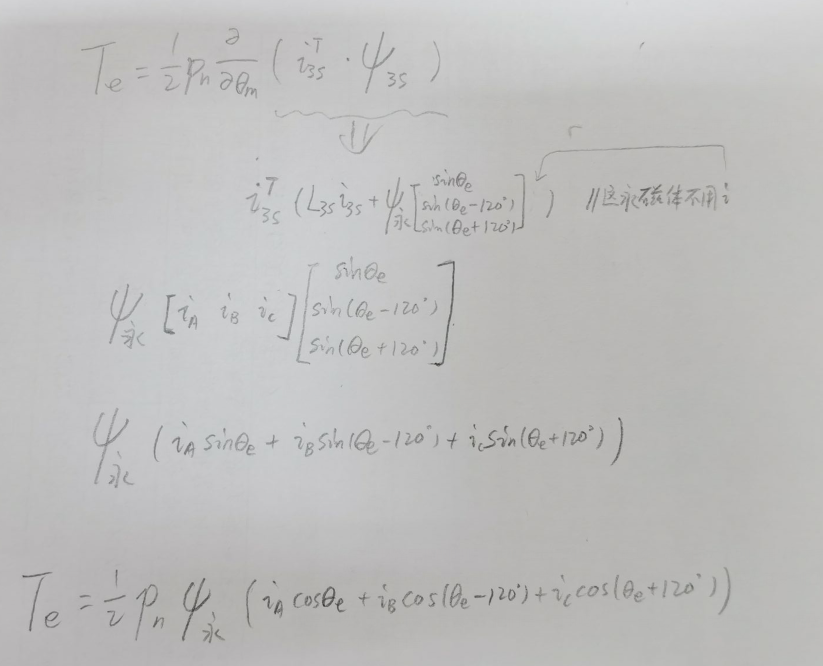 Te = 1/2 pn ∂/∂θm ( i3s^T · ψ3s )
⇓
i3s^T ( L3s i3s + ψ永 [ sinθe
sin(θe-120°)
sin(θe+120°) ] ) //这永磁体不用i
ψ永 [ iA iB iC ] [ sinθe
sin(θe-120°)
sin(θe+120°) ]
ψ永 ( iA sinθe + iB sin(θe-120°) + iC sin(θe+120°) )
Te = 1/2 pn ψ永 ( iA cosθe + iB cos(θe-120°) + iC cos(θe+120°) )